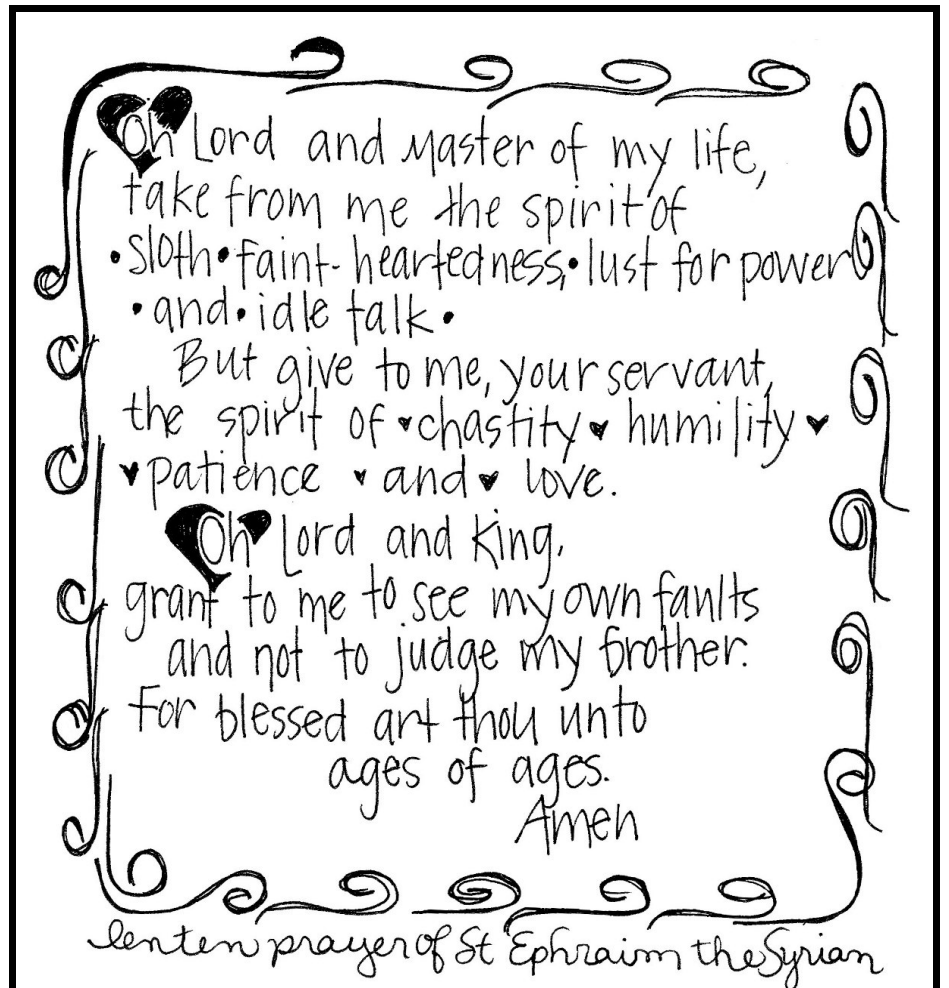 Oh Lord and Master of my life,
take from me the spirit of
•sloth•faint-heartedness,•lust for power
•and•idle talk•
But give to me, your servant,
the spirit of ♥chastity♥ humility♥
♥patience ♥and♥ love.
Oh Lord and King,
grant to me to see my own faults
and not to judge my brother.
For blessed art thou unto
ages of ages.
Amen
lenten prayer of St Ephraim the Syrian